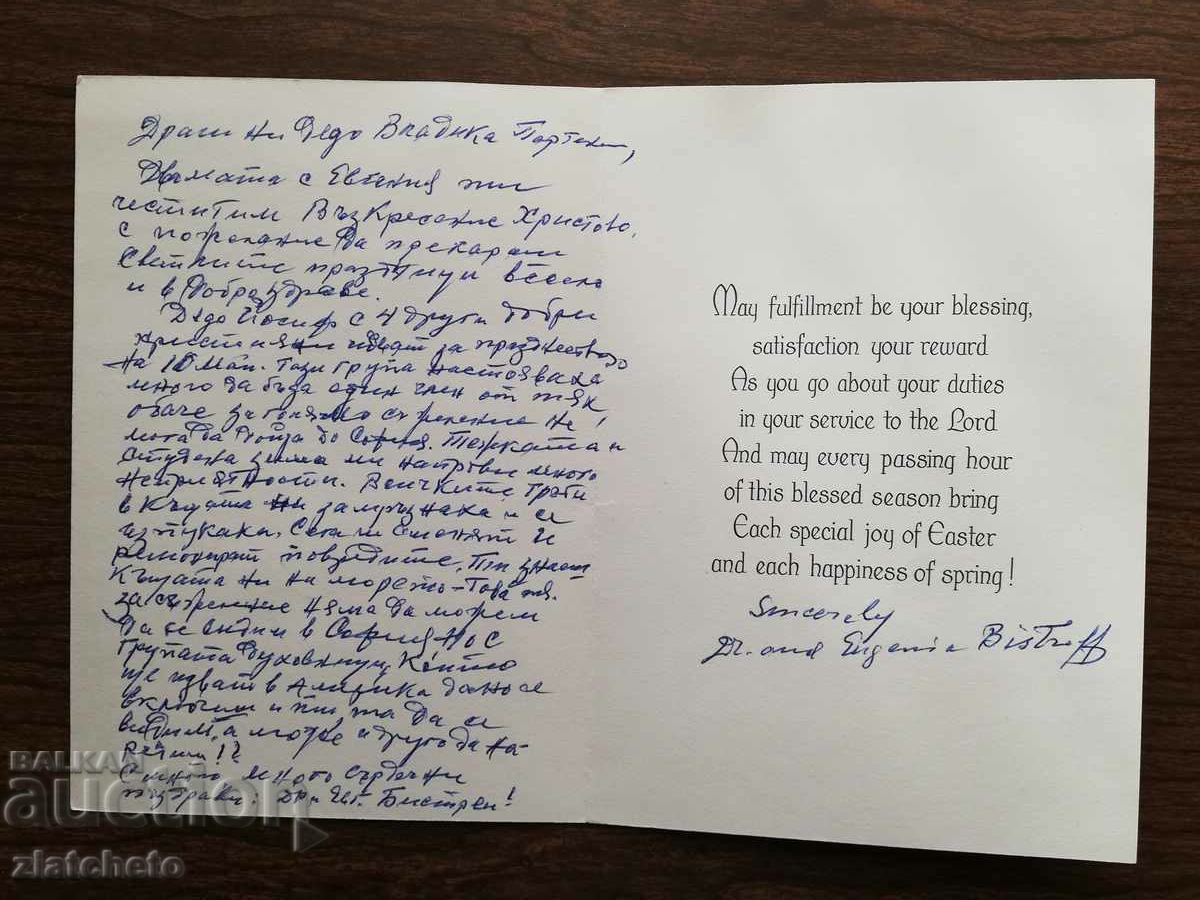 Драги ни Дедо Владика Партени,
Двамата с Евгения ти
честитим Възкресение Христово,
с пожелание да прекараш
светлите празници весело
и в добро здраве.
Дедо Йосиф с 4 други добри
християни идват за празнеството
на 10 Май. Тази група настояваха
много да бъда един член от тях,
обаче за голямо съжеление не
мога да дойда до София. Тежката и
студена зима ми направи много
неприятности. Всичките тръби
в къщата ни замръзнаха и се
изпукаха. Сега ги сменят и
ремонтират повредите. Ти знаеш
къщата ни на морето - Това е.
За съжеление няма да можем
да се видим в София но с
групата духовници, които
ще идват в Америка дано се
включиш и ти та да се
видим, а може и друго да на-
редиш!?
С много много сърдечни
поздрави: Др и Евг. Бистреви!
May fulfillment be your blessing,
satisfaction your reward
As you go about your duties
in your service to the Lord
And may every passing hour
of this blessed season bring
Each special joy of Easter
and each happiness of spring!
Sincerely
Dr. and Eugenia Bistreff
BALKAN
auction
zlatcheto